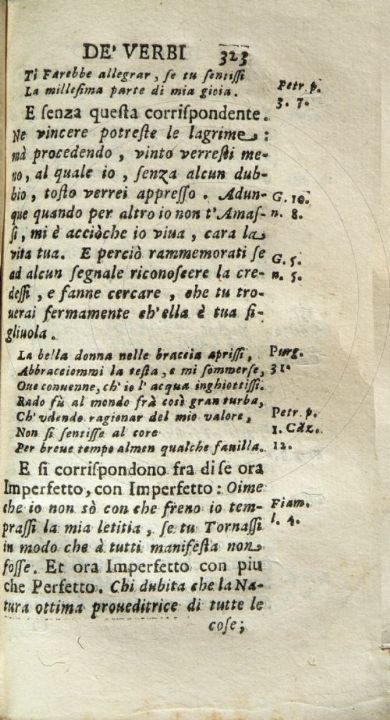 DE' VERBI 323
Ti Farebbe allegrar, se tu sentissi
La millesima parte di mia gioia. Petr. p.
3. 7.
E senza questa corrispondente.
Ne vincere potreste le lagrime:
mà procedendo, vinto verresti me-
no, al quale io, senza alcun dub-
bio, tosto verrei appresso. Adun- G. 10.
que quando per altro io non t'Amas- n. 8.
si, mi è acciòche io viua, cara la
vita tua. E perciò rammemorati se G. 5.
ad alcun segnale riconoscere la cre- n. 5.
dessi, e fanne cercare, che tu tro-
uerai fermamente ch'ella è tua fi-
gliuola.
La bella donna nelle braccia aprissi, Purg.
Abbracciommi la testa, e mi sommerse, 31.
Oue conuenne, ch'io l'acqua inghiottissi.
Rado fù al mondo frà così gran turba,
Ch'vdendo ragionar del mio valore, Petr. p.
Non si sentisse al core 1. Cãz.
Per breue tempo almen qualche fauilla. 12.
E si corrispondono fra di se ora
Imperfetto, con Imperfetto: Oime
che io non sò con che freno io tem- Fiam.
prassi la mia letitia, se tu Tornassi l. 4.
in modo che à tutti manifesta non
fosse. Et ora Imperfetto con piu
che Perfetto. Chi dubita che la Na-
tura ottima proueditrice di tutte le
cose;